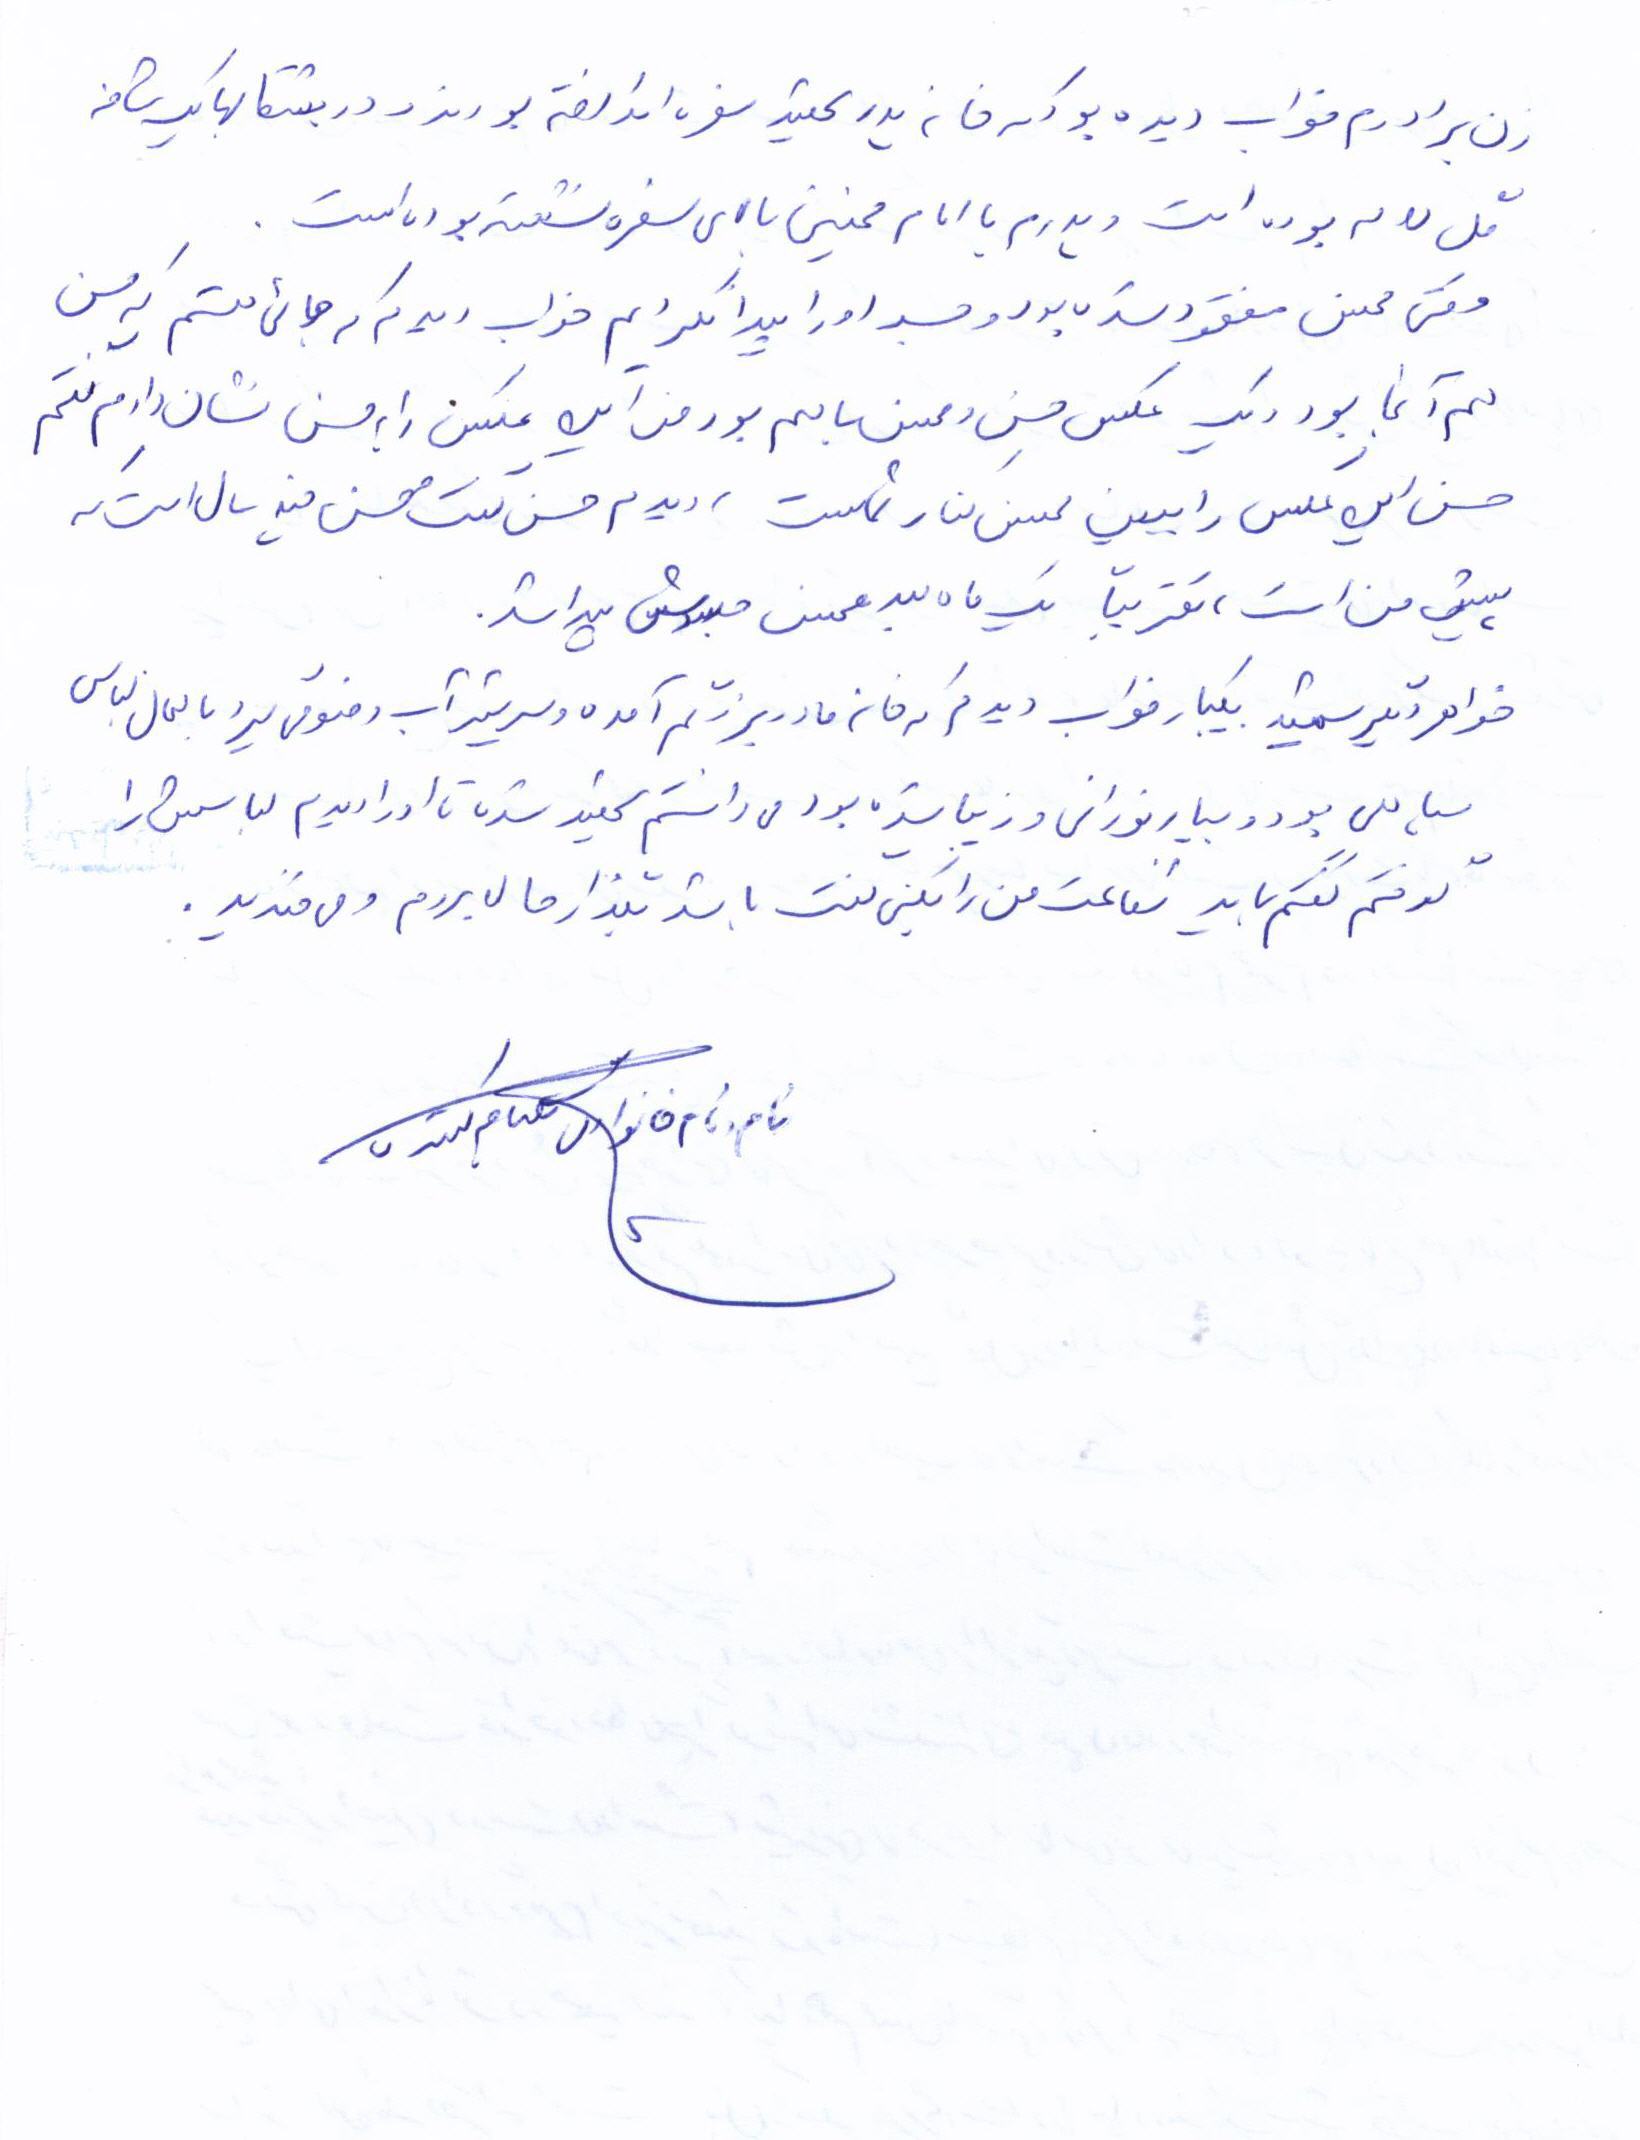 زن برادرم خواب دیده بود که خانه پدر شهید سفره انداخته بودند و در بشقابها یک شاخه
گل لاله بوده است و پدرم با امام خمینی بالای سفره نشسته بوده است .
وقتی محسن مفقود شده بود و جسد او را پیدا نکردیم خواب دیدم که جائی هستم که حسن
هم آنجا بود و یک عکس حسن و محسن با هم بود من این عکس را به حسن نشان دادم گفتم
حسن این عکس را ببین محسن کنار شماست ، دیدم حسن گفت محسن چند سال است که
پیش من است ، تقریباً یک ماه بعد محسن جسدش پیدا شد .
خواهر دیگر شهید یکبار خواب دیدم که خانه مادر بزرگم آمده و سر شیر آب وضو می گیرد با همان لباس
سپاهی بود و بسیار نورانی و زیبا شده بود می دانستم شهید شده تا او را دیدم لباسش را
گرفتم گفتم باید شفاعت من را بکنی گفت باشد بگذار حالا بروم و می خندید .
نام و نام خانوادگی